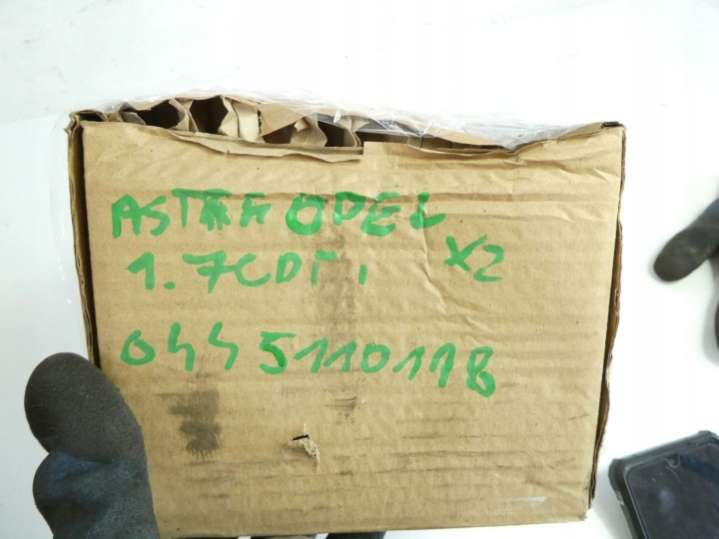 ASTRA OPEL
1.7CDTI X2
0445110118